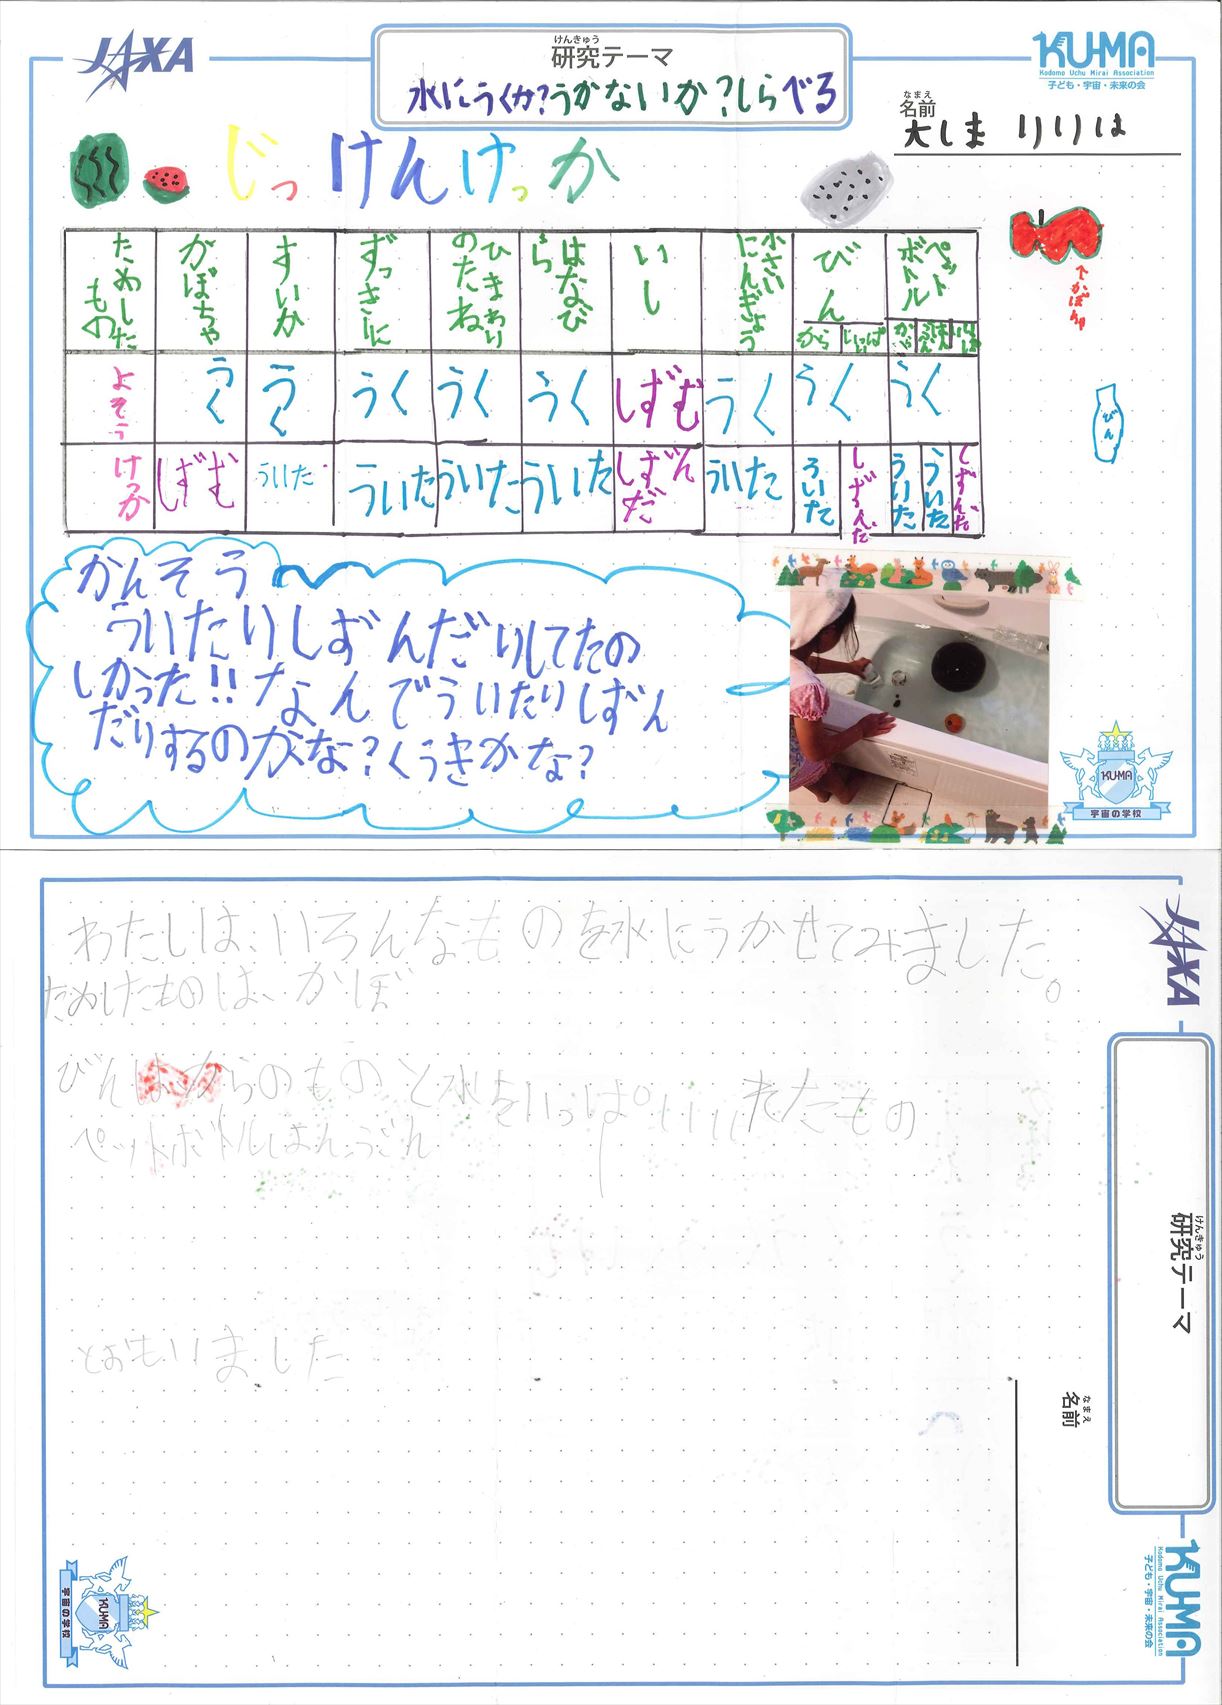 JAXA
けんきゅう
研究テーマ
水にうくか?うかないか?しらべる
KU-MA
Kodomo Uchu Mirai Association
子ども・宇宙・未来の会
なまえ
名前
大しま りりは
じっけんけっか
ためしたもの
かぼちゃ
すいか
ズッキーニ
ひまわりのたね
はなびら
いし
小さいにんぎょう
びん
から
いっぱい
ペットボトル
から
はんぶん
よそう
うく
うく
うく
うく
うく
しずむ
うく
うく
うく
けっか
しずむ
ういた
ういた
ういた
ういた
しずんだ
ういた
ういた
しずんだ
ういた
ういた
しずんだ
びん
かんそう
ういたりしずんだりしてたの
しかった!!なんでういたりしずん
だりするのかな?くうきかな?
KU-MA
宇宙の学校
わたしは、いろんなものを水にうかせてみました。
ためしたものは、かぼ
びんはからのものと水をいっぱいいれたもの
ペットボトルはんぶん
とおもいました
JAXA
けんきゅう
研究テーマ
なまえ
名前
KU-MA
Kodomo Uchu Mirai Association
子ども・宇宙・未来の会
KU-MA
宇宙の学校